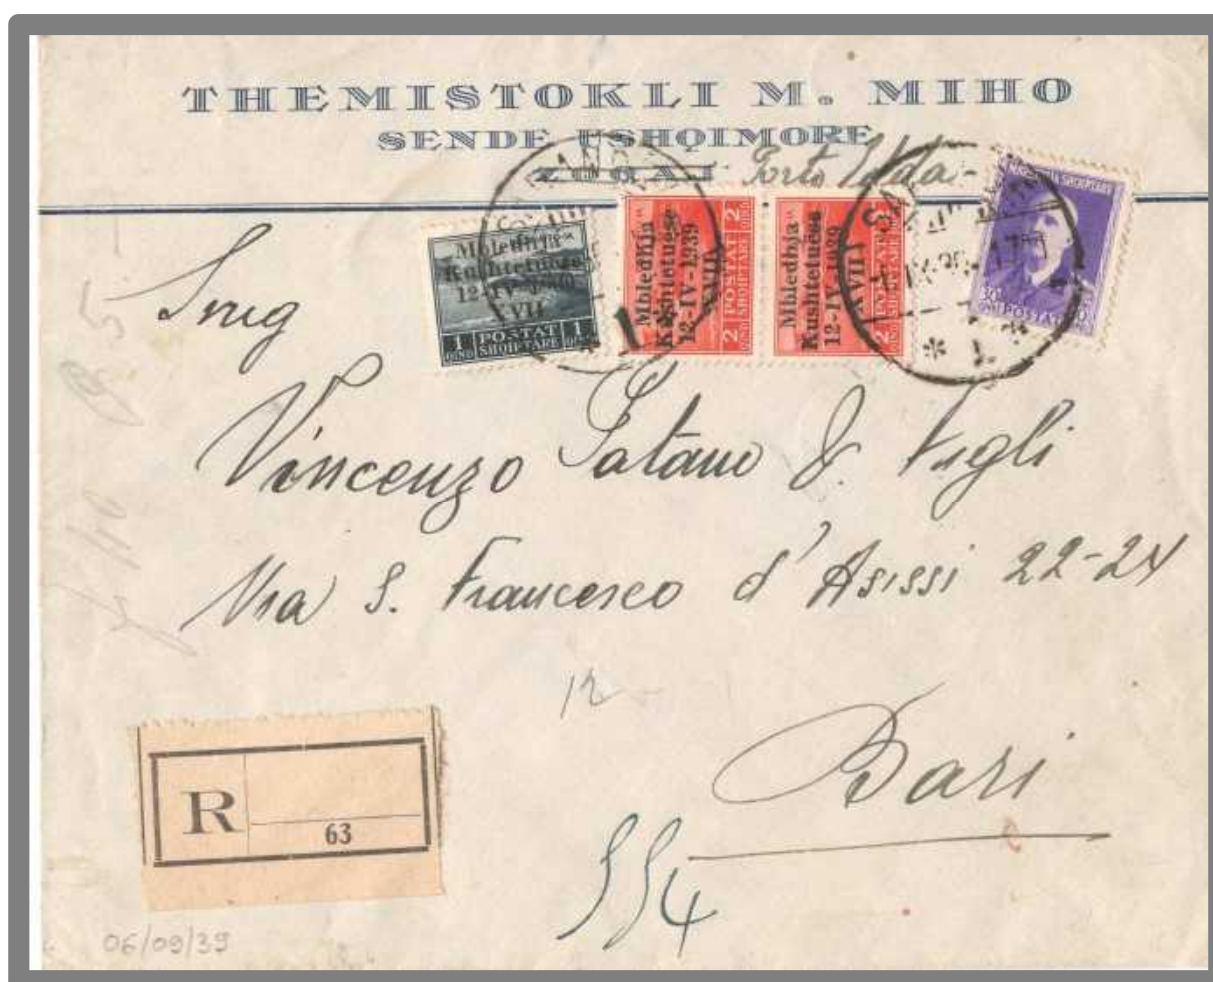 THEMISTOKLI M. MIHO
SENDE USHQIMORE
ZOGAJ Porto Edda
Mbledhja
Kushtetuese
12-IV-1939
XVII
1 POSTAT 1
QIND SHQIPTARE QIND
Mbledhja
Kushtetuese
12-IV-1939
XVII
2 POSTAT 2
SHQIPTARE
Mbledhja
Kushtetuese
12-IV-1939
XVII
2 POSTAT 2
SHQIPTARE
SHQIPTARE
POSTAT
Vincenzo & Figli
Via S. Francesco d'Asissi 22-24
12
Bari
R
63
554
06/09/39